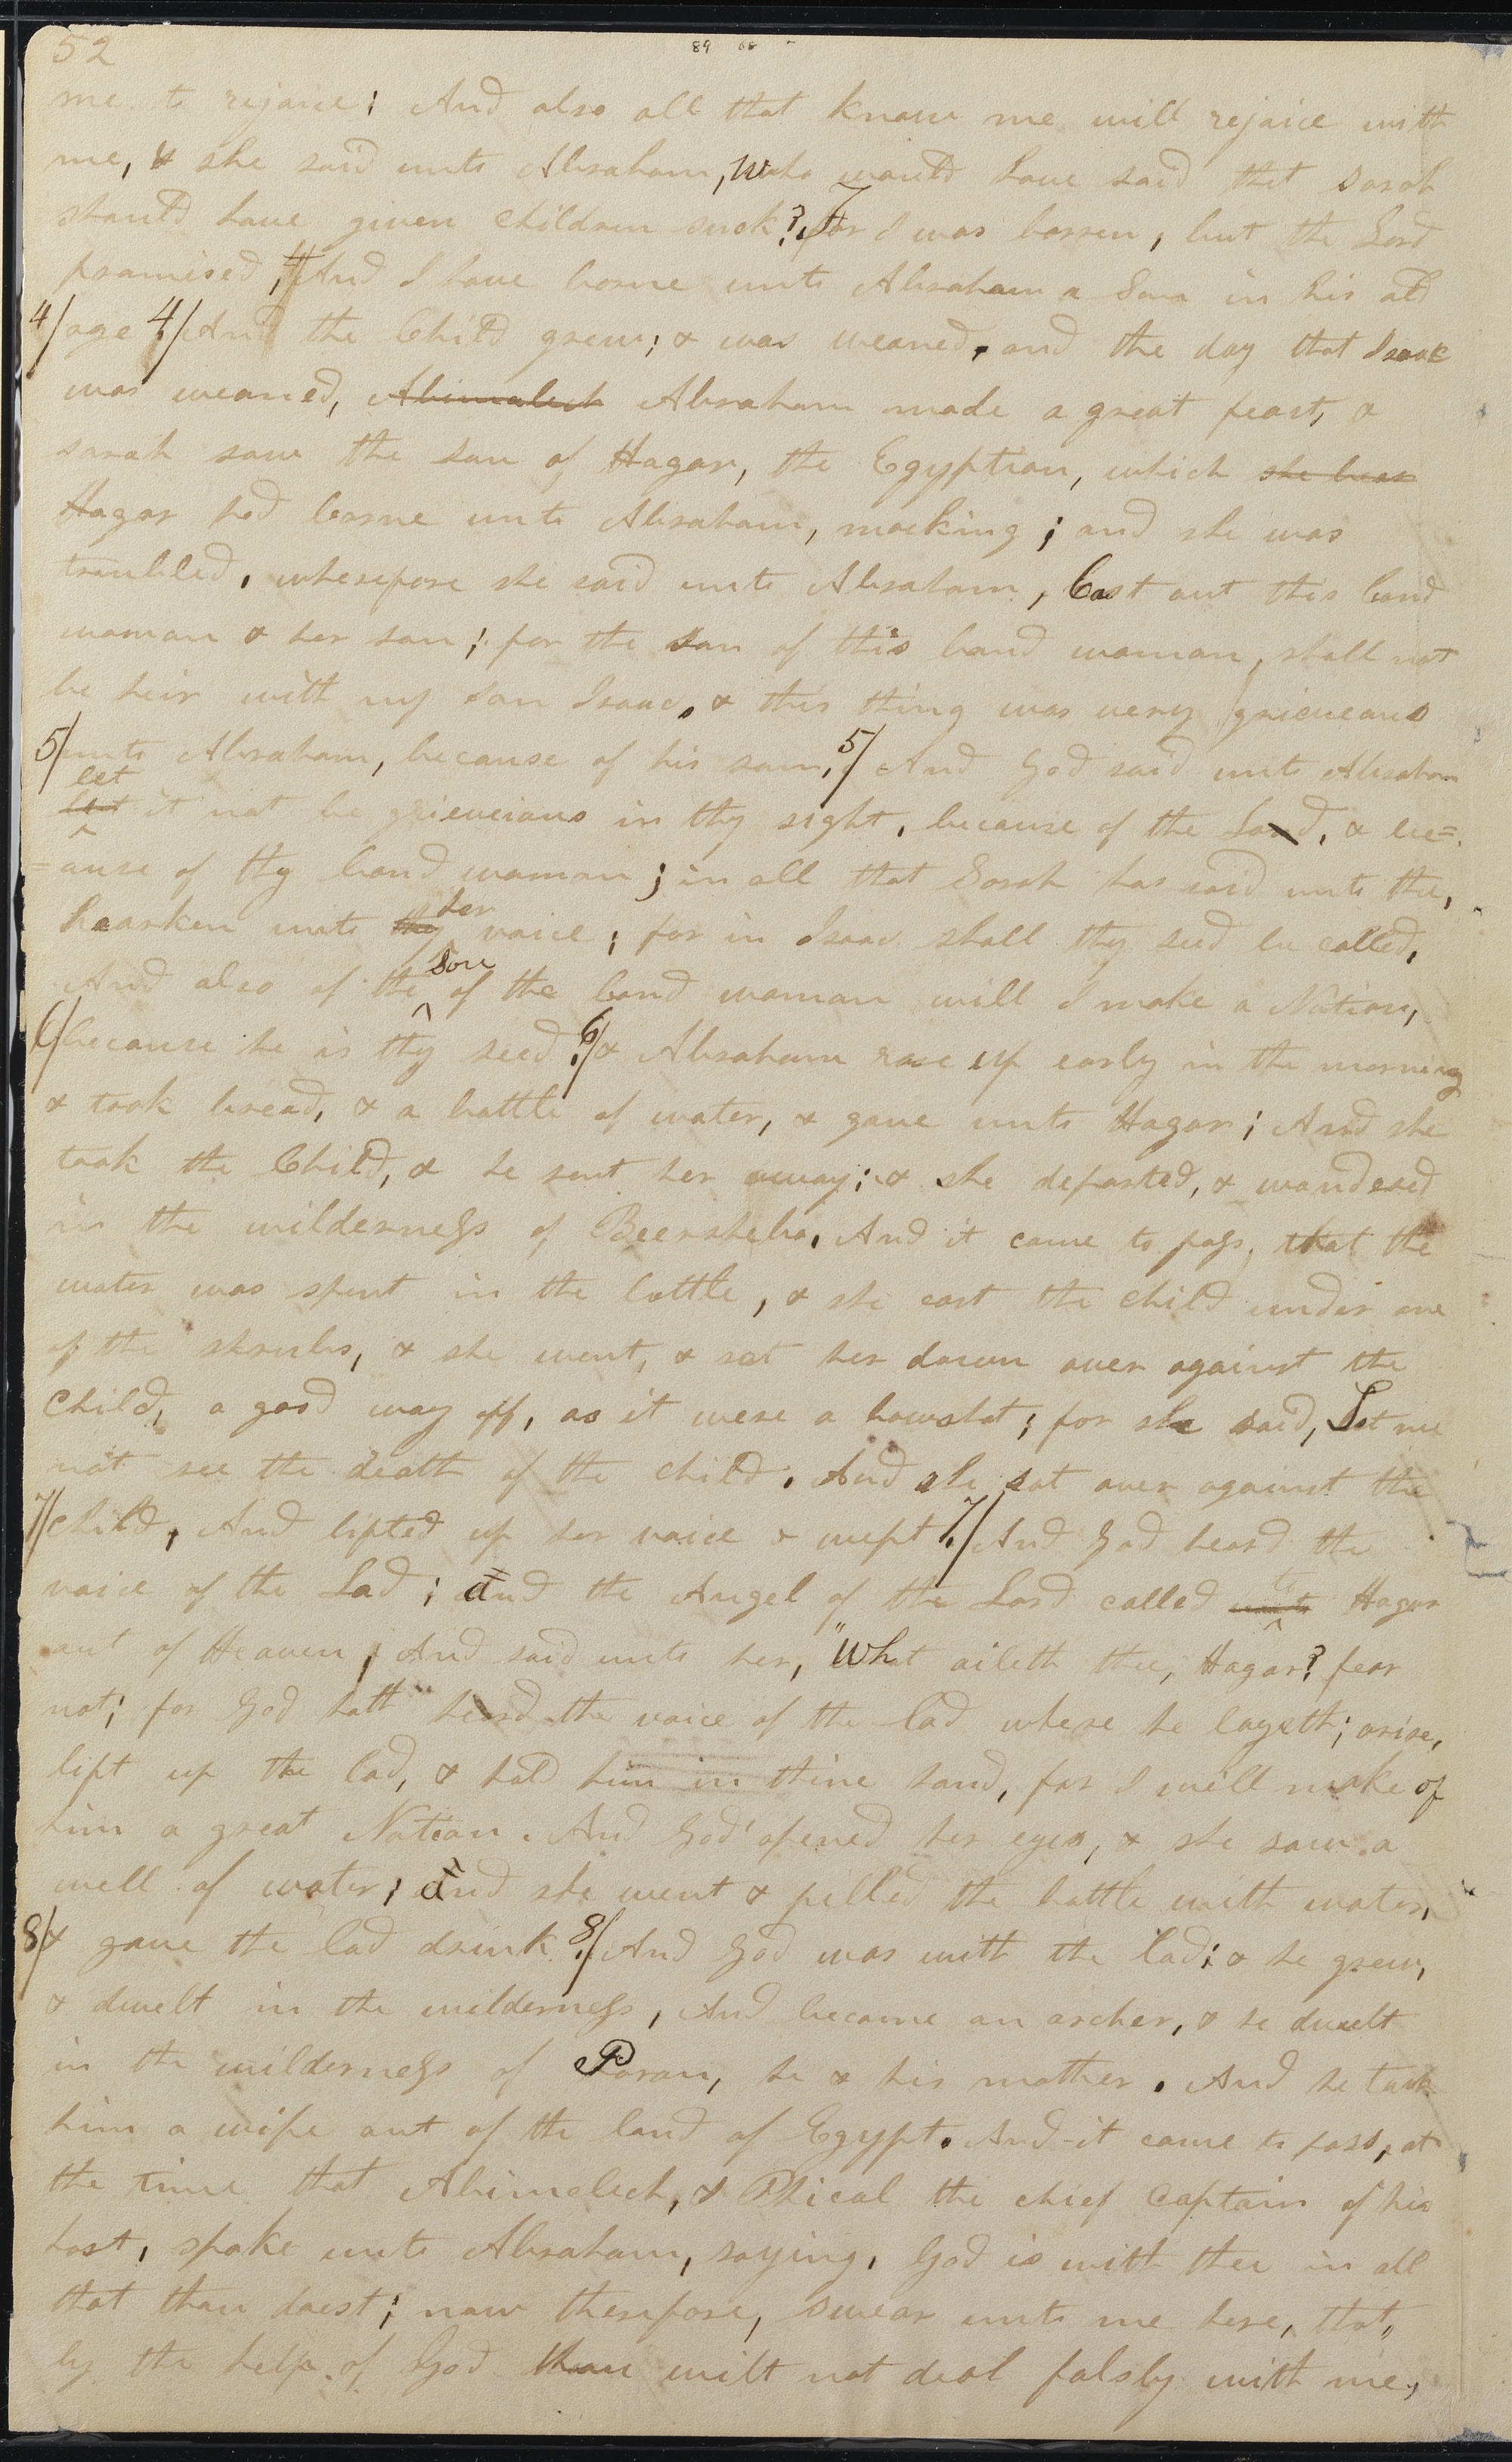 52
89
me to rejoice; And also all that know me will rejoice with
me, & she said unto Abraham, Who would have said that Sarah
should have given children suck? For I was barren, but the Lord
promised, And I have borne unto Abraham a Son in his old
4/ age 4/ And the Child grew; & was weaned. and the day that Isaac
was weaned, Abimalech Abraham made a great feast, &
sarah saw the son of Hagar, the Egyptian, which she bear
Hagar had borne unto Abraham, mocking; and she was
troubled, wherefore she said unto Abraham, Cast out this bond
woman & her son; for the son of this bond woman, shall not
be heir with my son Isaac, & this thing was very grieveous
5/ unto Abraham, because of his son, 5/ And God said unto Abraham
let
but it not be grieveious in thy sight, because of the Lad, & bec=
=ause of thy bond woman; in all that Sarah has said unto the,
her
hearken unto thy voice; for in Isaac shall thy seed be called,
son
And also of the ^ of the bond woman will I make a Nation,
6/ because he is thy seed. 6/ & Abraham rose up early in the morning
& took bread, & a bottle of water, & gave unto Hagar; And she
took the Child, & he sent her away; & she departed, & wandered
in the wilderness of Beersheba, And it came to pass, that the
water was spent in the bottle, & she cast the child under one
of the shrubs, & she went, & sat her down over against the
child, a good way off, as it were a bowshot; for she said, Let me
not see the death of the child. And she sat over against the
7/ child, And lifted up her voice & wept. 7/ And God heard the
voice of the Lad; and the Angel of the Lord called unto ^to Hagar
out of Heaven, And said unto her, "What aileth thee, Hagar? fear
not; for God hath heard the voice of the lad where he layeth; arise,
lift up the lad, & hold him in thine hand, for I will make of
him a great Nation. And God opened her eyes, & she saw a
well of water; and she went & filled the bottle with water,
8/ & gave the lad drink. 8/ And God was with the lad; & he grew,
& dwelt in the wilderness, And became an archer, & he dwelt
in the wilderness of Paran, he & his mother. And he took
him a wife out of the land of Egypt. And it came to pass, at
the time that Abimelech, & Phicol the chief captain of his
host, spake unto Abraham, saying, God is with thee in all
that thou doest; now therefore, swear unto me here, that,
by the help of God thou wilt not deal falsly with me,